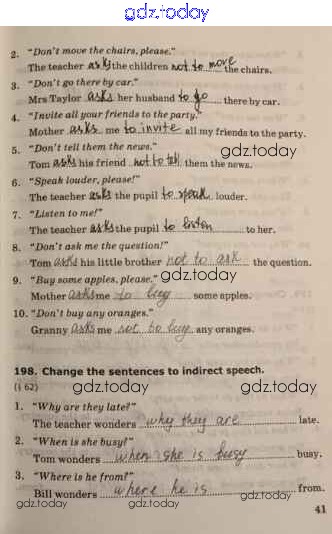 gdz.today
2. "Don't move the chairs, please."
The teacher asks the children not to move the chairs.
3. "Don't go there by car."
Mrs Taylor asks her husband to go there by car.
4. "Invite all your friends to the party."
Mother asks me to invite all my friends to the party.
5. "Don't tell them the news."
gdz.today
Tom asks his friend not to tell them the news.
6. "Speak louder, please!"
The teacher asks the pupil to speak louder.
7. "Listen to me!"
The teacher asks the pupil to listen to her.
8. "Don't ask me the question!"
Tom asks his little brother not to ask the question.
9. "Buy some apples, please."
gdz.today
Mother asks me to buy some apples.
10. "Don't buy any oranges."
Granny asks me not to buy any oranges.
198. Change the sentences to indirect speech.
(§ 62)
gdz.today gdz.today
1. "Why are they late?"
The teacher wonders why they are late.
2. "When is she busy?"
Tom wonders when she is busy busy.
3. "Where is he from?"
Bill wonders where he is from.
gdz.today gdz.today gdz.today
41